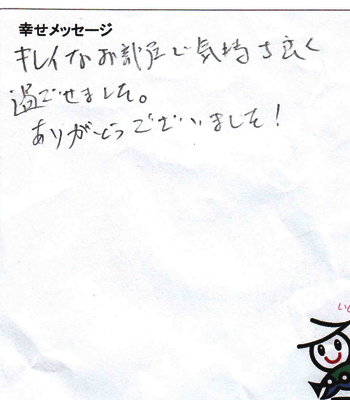 幸せメッセージ
キレイなお部屋で気持ち良く
過ごせました。
ありがとうございました!